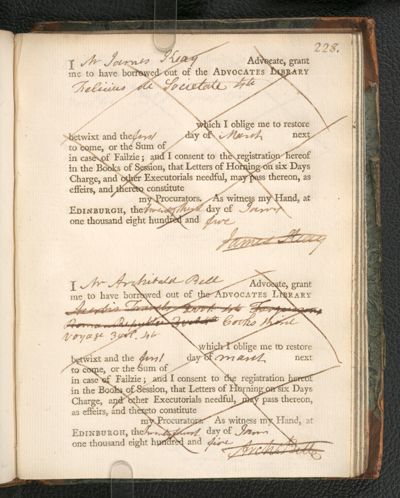 228.
I Mr James Keay Advocate, grant
me to have borrowed out of the ADVOCATES LIBRARY
Felicius de Societate 4to
which I oblige me to restore
betwixt and the first day of March next
to come, or the Sum of
in case of Failzie; and I consent to the registration hereof
in the Books of Session, that Letters of Horning on six Days
Charge, and other Executorials needful, may pass thereon, as
effeirs, and thereto constitute
my Procurators. As witness my Hand, at
EDINBURGH, the day of Janry
one thousand eight hundred and five
James Keay
I Mr Archibald Bell Advocate, grant
me to have borrowed out of the ADVOCATES LIBRARY
Travels Fergusons
Roman Republic Cooks third
Voyage 3 vol. 4to
which I oblige me to restore
betwixt and the first day of March next
to come, or the Sum of
in case of Failzie; and I consent to the registration hereof
in the Books of Session, that Letters of Horning on six Days
Charge, and other Executorials needful, may pass thereon,
as effeirs, and thereto constitute
my Procurators. As witness my Hand, at
EDINBURGH, the day of Janry
one thousand eight hundred and five
Archd Bell